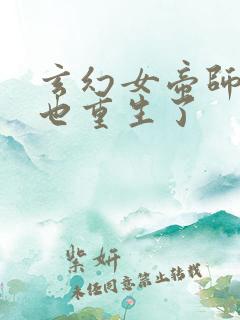 玄幻女帝師
也重生了
紫妍
未经同意禁止转载